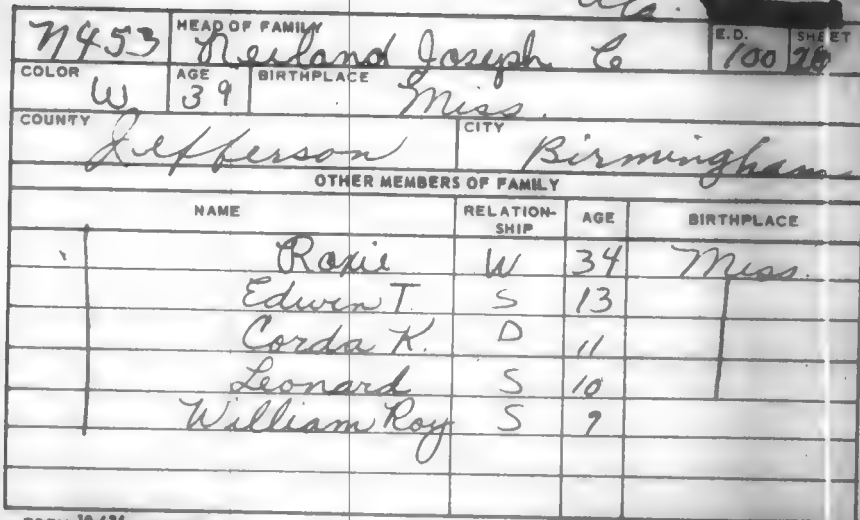 Ala.
N453 HEAD OF FAMILY Neiland Joseph C E.D. 100 SHEET
COLOR W AGE 39 BIRTHPLACE Miss.
COUNTY Jefferson CITY Birmingham
OTHER MEMBERS OF FAMILY
NAME RELATION-SHIP AGE BIRTHPLACE
Roxie W 34 Miss.
Edwin T. S 13
Corda K. D 11
Leonard S 10
William Roy S 9